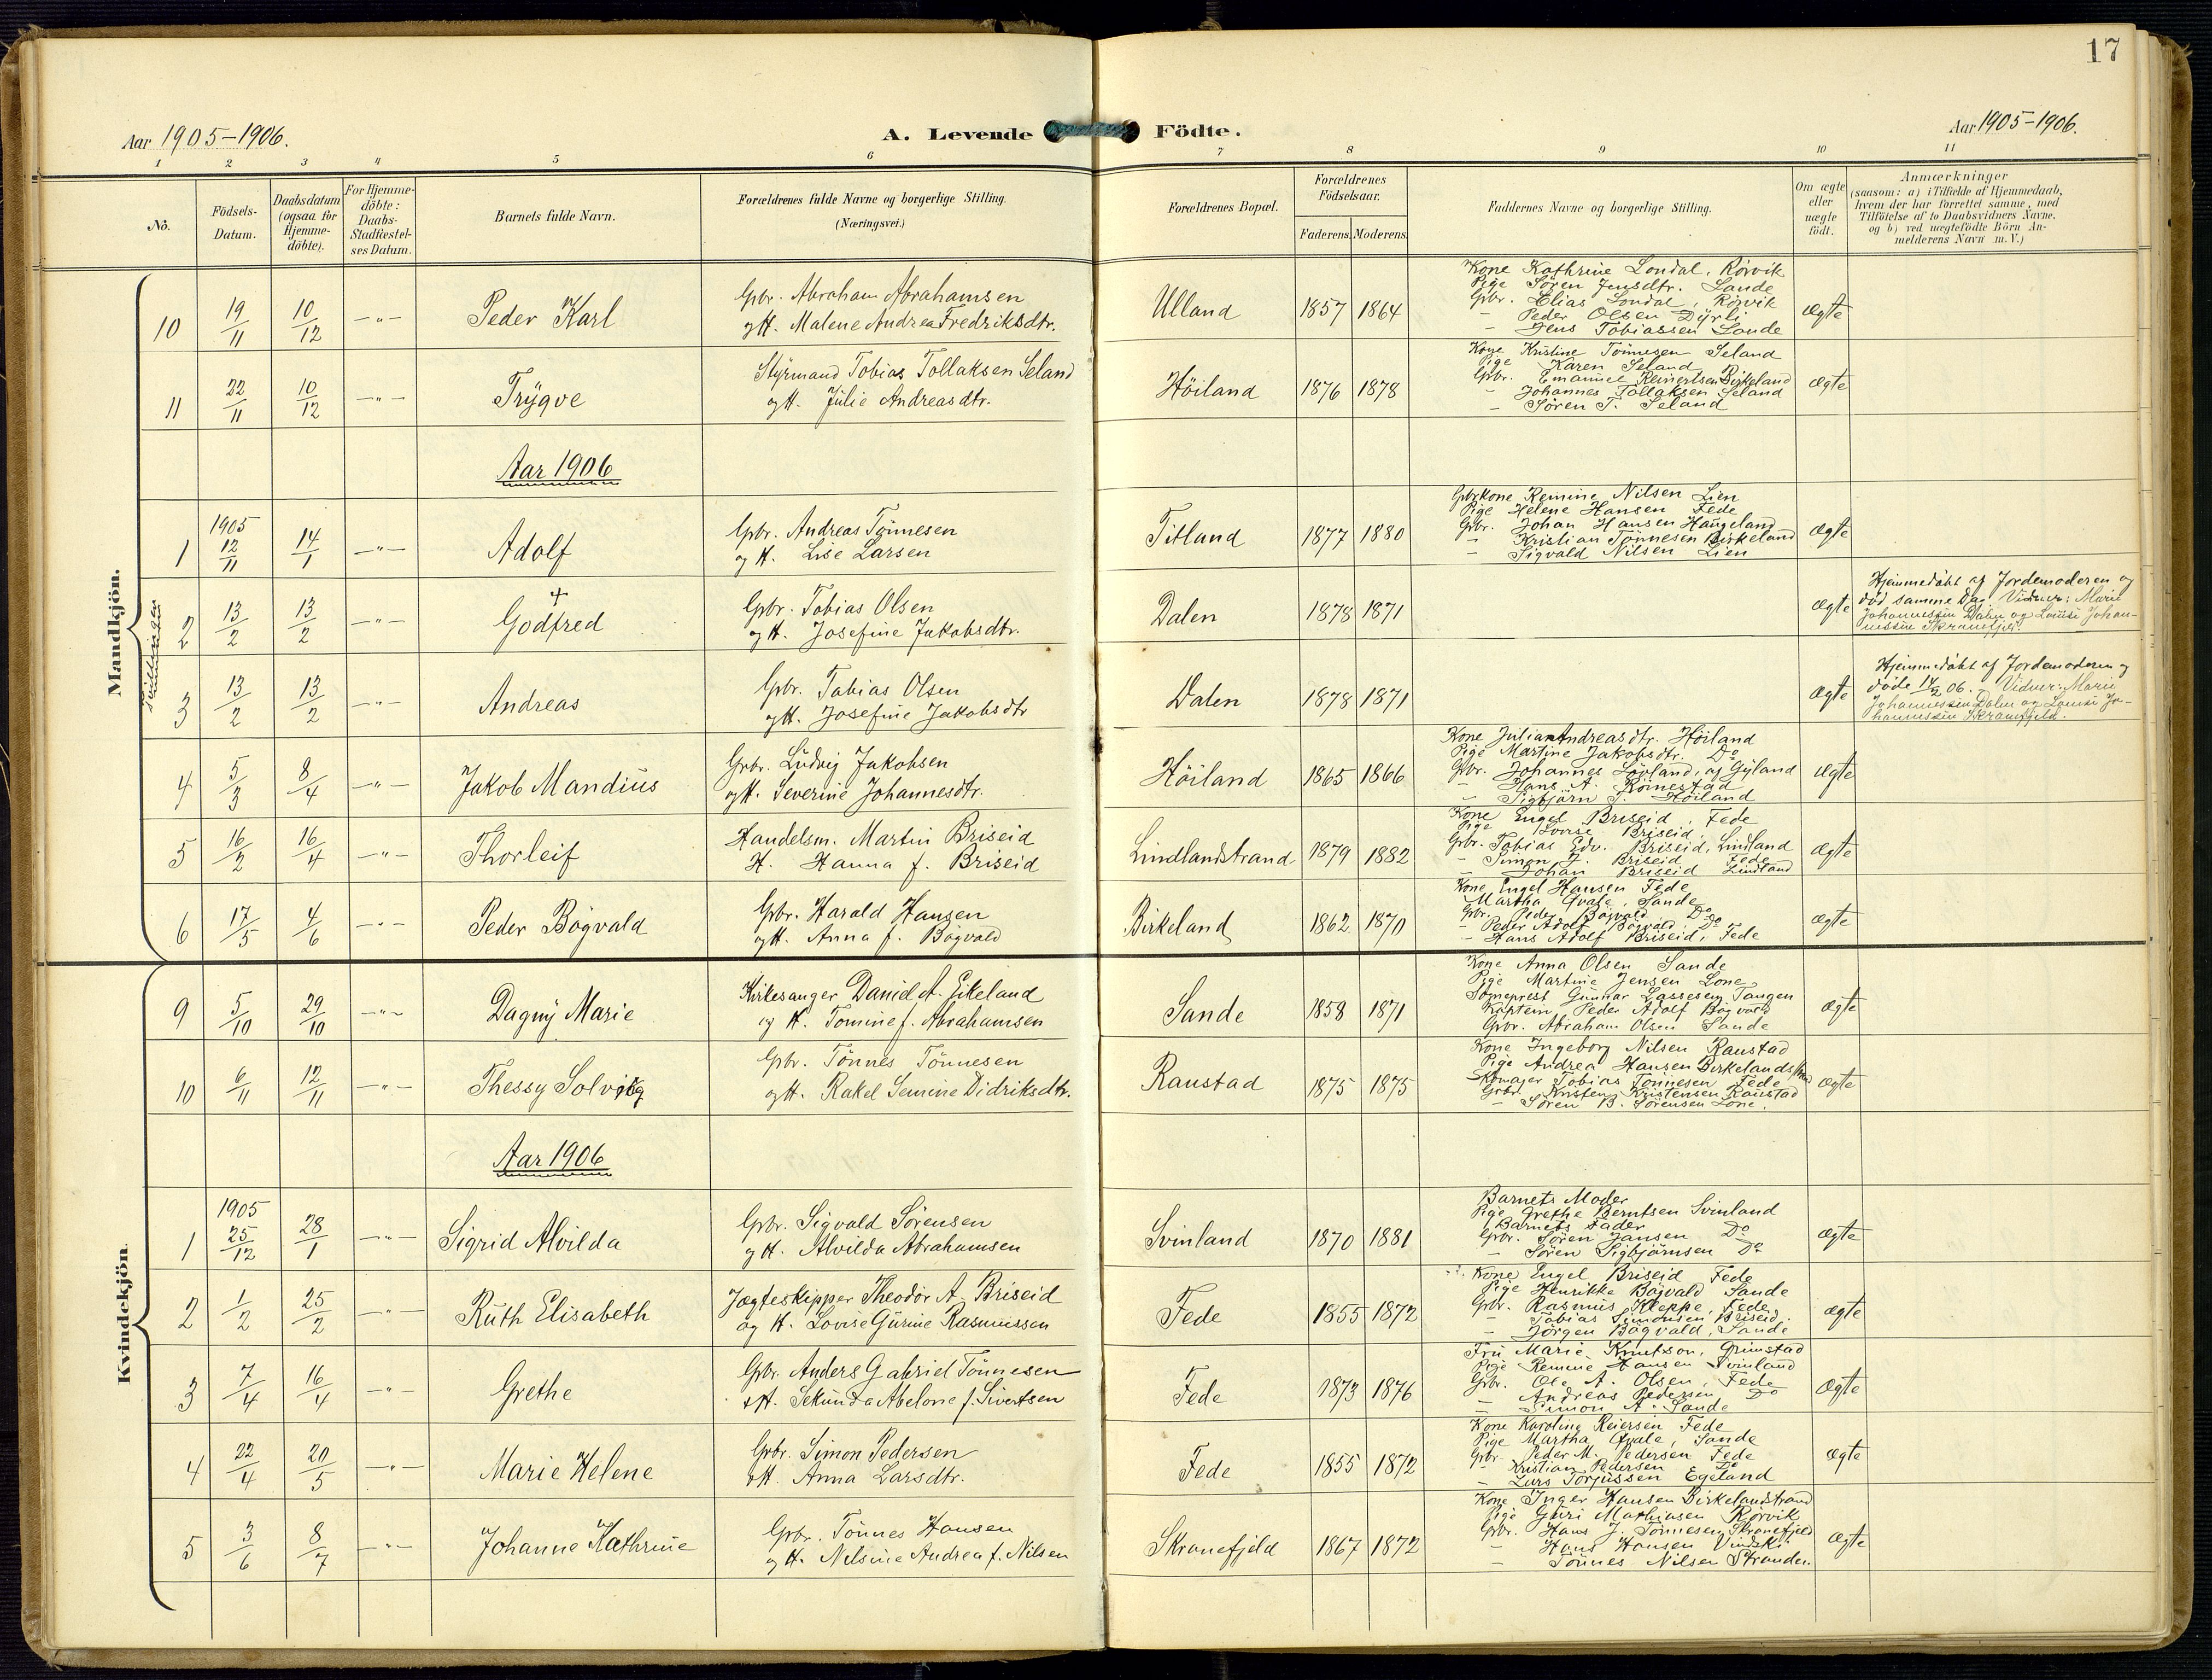 17
Aar 1905-1906.
A. Levende Födte.
Aar 1905-1906.
1 2 3 4 5 6 7 8 9 10 11
No.
Födsels-Datum.
Daabsdatum (ogsaa for Hjemme-döbte).
For Hjemme-döbte: Daabs-Stadfæstel-ses Datum.
Barnets fulde Navn.
Forældrenes fulde Navne og borgerlige Stilling.
(Næringsvei.)
Forældrenes Bopæl.
Forældrenes Födselsaar.
Faderens. Moderens.
Faddernes Navne og borgerlige Stilling.
Om ægte eller uægte födt.
Anmærkninger
(saasom: a) i Tilfælde af Hjemmedaab,
hvem der har forrettet samme, med
Tilföielse af to Daabsvidners Navne,
og b) ved uægtefödte Börn An-
melderens Navn m. V.)
Mandkjön.
10 19/11 10/12 -"- Peder Karl
Gbr. Abraham Abrahamsen
og H. Malene Andrea Fredriksdtr.
Ulland 1857 1864
Kone Kathrine Londal, Rörvik
Pige Sören Jensdtr. Sande
Gbr. Elias Londal, Rörvik
- Peder Olsen Dyrli
- Jens Tobiassen Sande
Ægte
11 22/11 10/12 -"- Trygve
Styrmand Tobias Tollaksen Seland
og H. Julie Andreasdtr.
Höiland 1876 1878
Kone Kristine Tönnesen Seland
Pige Karen Seland
Gbr. Emanuel Reinertsen Birkeland
- Johannes Tollaksen Seland
- Sören T. Seland
Ægte
Aar 1906
1 1905 12/11 14/1 -"- Adolf
Gbr. Andreas Tönnesen
og H. Lise Larsen
Titland 1877 1880
Gbrkone Remine Nilsen Lien
Pige Helene Hansen Fede
Gbr. Johan Hansen Haugeland
- Kristian Tönnesen Birkeland
- Sigvald Nilsen Lien
Ægte
Tvillinger
2 13/2 13/2 -"- + Godfred
Gbr. Tobias Olsen
og H. Josefine Jakobsdtr.
Dalen 1878 1871
Ægte
Hjemmedöbt af Jordemoderen og
död samme Dag. Vidner: Marie
Johannessen Dalen og Louise Johan-
nessen Skranefjeld.
3 13/2 13/2 -"- Andreas
Gbr. Tobias Olsen
og H. Josefine Jakobsdtr
Dalen 1878 1871
Ægte
Hjemmedöbt af Jordemoderen og
döde 14/2 06. Vidner: Marie
Johannessen Dalen og Louise Jo-
hannessen Skranefjeld.
4 5/3 8/4 -"- Jakob Mandius
Gbr. Ludvig Jakobsen
og H. Severine Johannesdtr.
Höiland 1865 1866
Kone Julia Andreasdtr. Höiland
Pige Martine Jakobsdtr. Do
Gbr. Johannes Lövland, og Gyland
- Hans A. Römestad
- Sigbjörn J. Höiland
Ægte
5 16/2 16/4 -"- Thorleif
Handelsm. Martin Briseid
H. Hanna f. Briseid
Lindlandstrand 1879 1882
Kone Engel Briseid, Fede
Pige Lovise Briseid,
Gbr. Tobias Edv. Briseid, Lindland
- Simon J. Briseid Fede
- Johan Briseid Lindland
Ægte
6 17/5 4/6 -"- Peder Bögvald
Gbr. Harald Hansen
og H. Anna f. Bögvald
Birkeland 1862 1870
Kone Engel Hansen Fede
Martha Qvale, Sande
Gbr. Peder Bögvald Do
- Peder Adolf Bögvald, Do
- Hans Adolf Briseid, Fede
Ægte
Kvindekjön.
9 5/10 29/10 -"- Dagny Marie
Kirkesanger Daniel A. Eikeland
og H. Tomine f. Abrahamsen
Sande 1858 1871
Kone Anna Olsen Sande
Pige Martine Jensen Lone
Sogneprest Gunnar Lassesen Tangen
Kaptein Peder Adolf Bögvald
Gbr. Abraham Olsen Sande
Ægte
10 6/11 12/11 -"- Thessy Solvig
Gbr. Tönnes Tönnesen
og H. Rakel Semine Didriksdtr.
Raustad 1875 1875
Kone Ingeborg Nilsen Raustad
Pige Andrea Hansen Birkelands
Skomager Tobias Tönnesen Fede
Gbr. Kristen Kristensen Raustad
- Sören B. Sörensen Lone.
Ægte
Aar 1906
1 1905 25/12 28/1 -"- Sigrid Alvilda
Gbr. Sigvald Sörensen
og H. Alvilda Abrahamsen
Svinland 1870 1881
Barnets Moder
Pige Grethe Berntsen Svinland
Barnets Fader
Gbr. Sören Jansen Do
- Sören Sigbjörnsen Do
Ægte
2 1/2 25/2 -"- Ruth Elisabeth
Jægteskipper Theodor A. Briseid
og H. Lovise Gurine Rasmussen
Fede 1855 1872
Kone Engel Briseid Fede
Pige Henrikke Bögvald Sande
Gbr. Rasmus Kleppe, Fede
- Tobias Simonsen Briseid
- Jörgen Bögvald, Sande
Ægte
3 7/4 16/4 -"- Grethe
Gbr. Anders Gabriel Tönnesen
og H. Sekunda Abelone f. Sivertsen
Fede 1873 1876
Fru Marie Knutson, Grimstad
Pige Remine Hansen Svinland
Gbr. Ole A. Olsen, Fede
- Andreas Pedersen, Do
- Simon A. Sande
Ægte
4 22/4 20/5 -"- Marie Helene
Gbr. Simon Pedersen
og H. Anna Larsdtr.
Fede 1855 1872
Kone Karoline Reiersen Fede
Pige Martha Qvale, Sande
Gbr. Peder M. Pedersen Fede
- Kristian Pedersen Do
- Lars Torjussen Egeland
Ægte
5 3/6 8/7 -"- Johanne Kathrine
Gbr. Tönnes Hansen
og H. Nilsine Andrea f. Nilsen
Skranefjeld 1867 1872
Kone Inger Hansen Birkelandstrand
Pige Guri Mathiasen Rörvik
Gbr. Hans J. Tönnesen Skranefjeld
- Hans Hansen
- Tönnes Nilsen Stranden.
Ægte